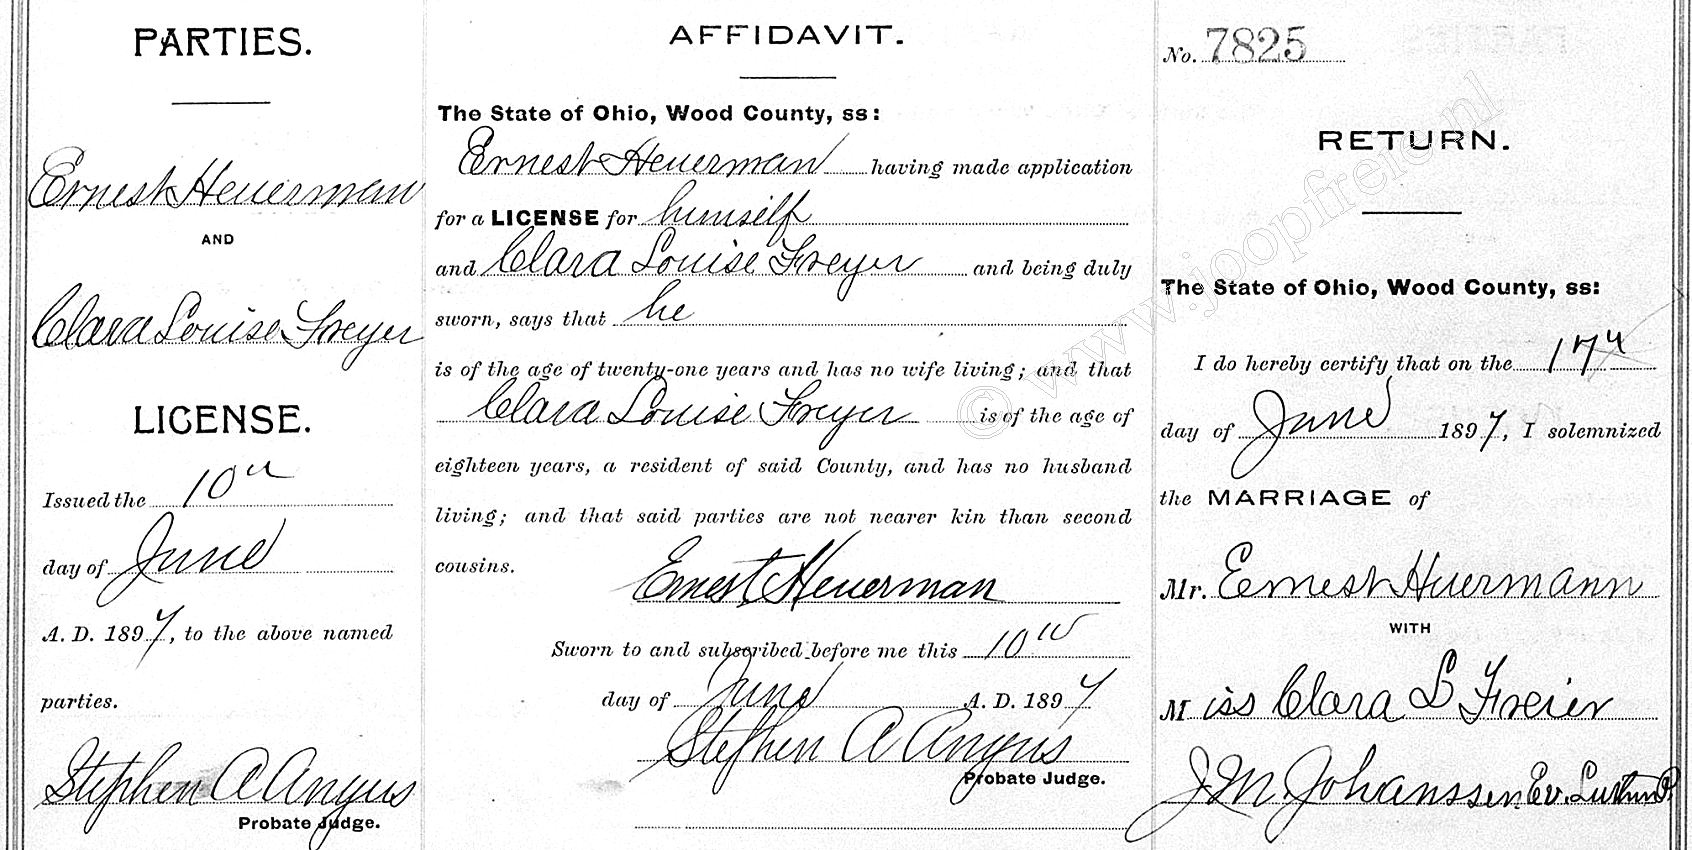 PARTIES.
Ernest Heuerman
AND
Clara Louise Freyer
LICENSE.
Issued the 10th
day of June
A. D. 1897, to the above named
parties.
Stephen A Angus
Probate Judge.
AFFIDAVIT.
The State of Ohio, Wood County, ss:
Ernest Heuerman having made application
for a LICENSE for himself
and Clara Louise Freyer and being duly
sworn, says that he
is of the age of twenty-one years and has no wife living; and that
Clara Louise Freyer is of the age of
eighteen years, a resident of said County, and has no husband
living; and that said parties are not nearer kin than second
cousins.
Ernest Heuerman
Sworn to and subscribed before me this 10th
day of June A. D. 1897
Stephen A Angus
Probate Judge.
No. 7825
RETURN.
The State of Ohio, Wood County, ss:
I do hereby certify that on the 17th
day of June 1897, I solemnized
the MARRIAGE of
Mr. Ernest Huermann
WITH
Miss Clara L Freier
J. M. Johanssen Ev. Luthn P.
© www.joopfreier.nl